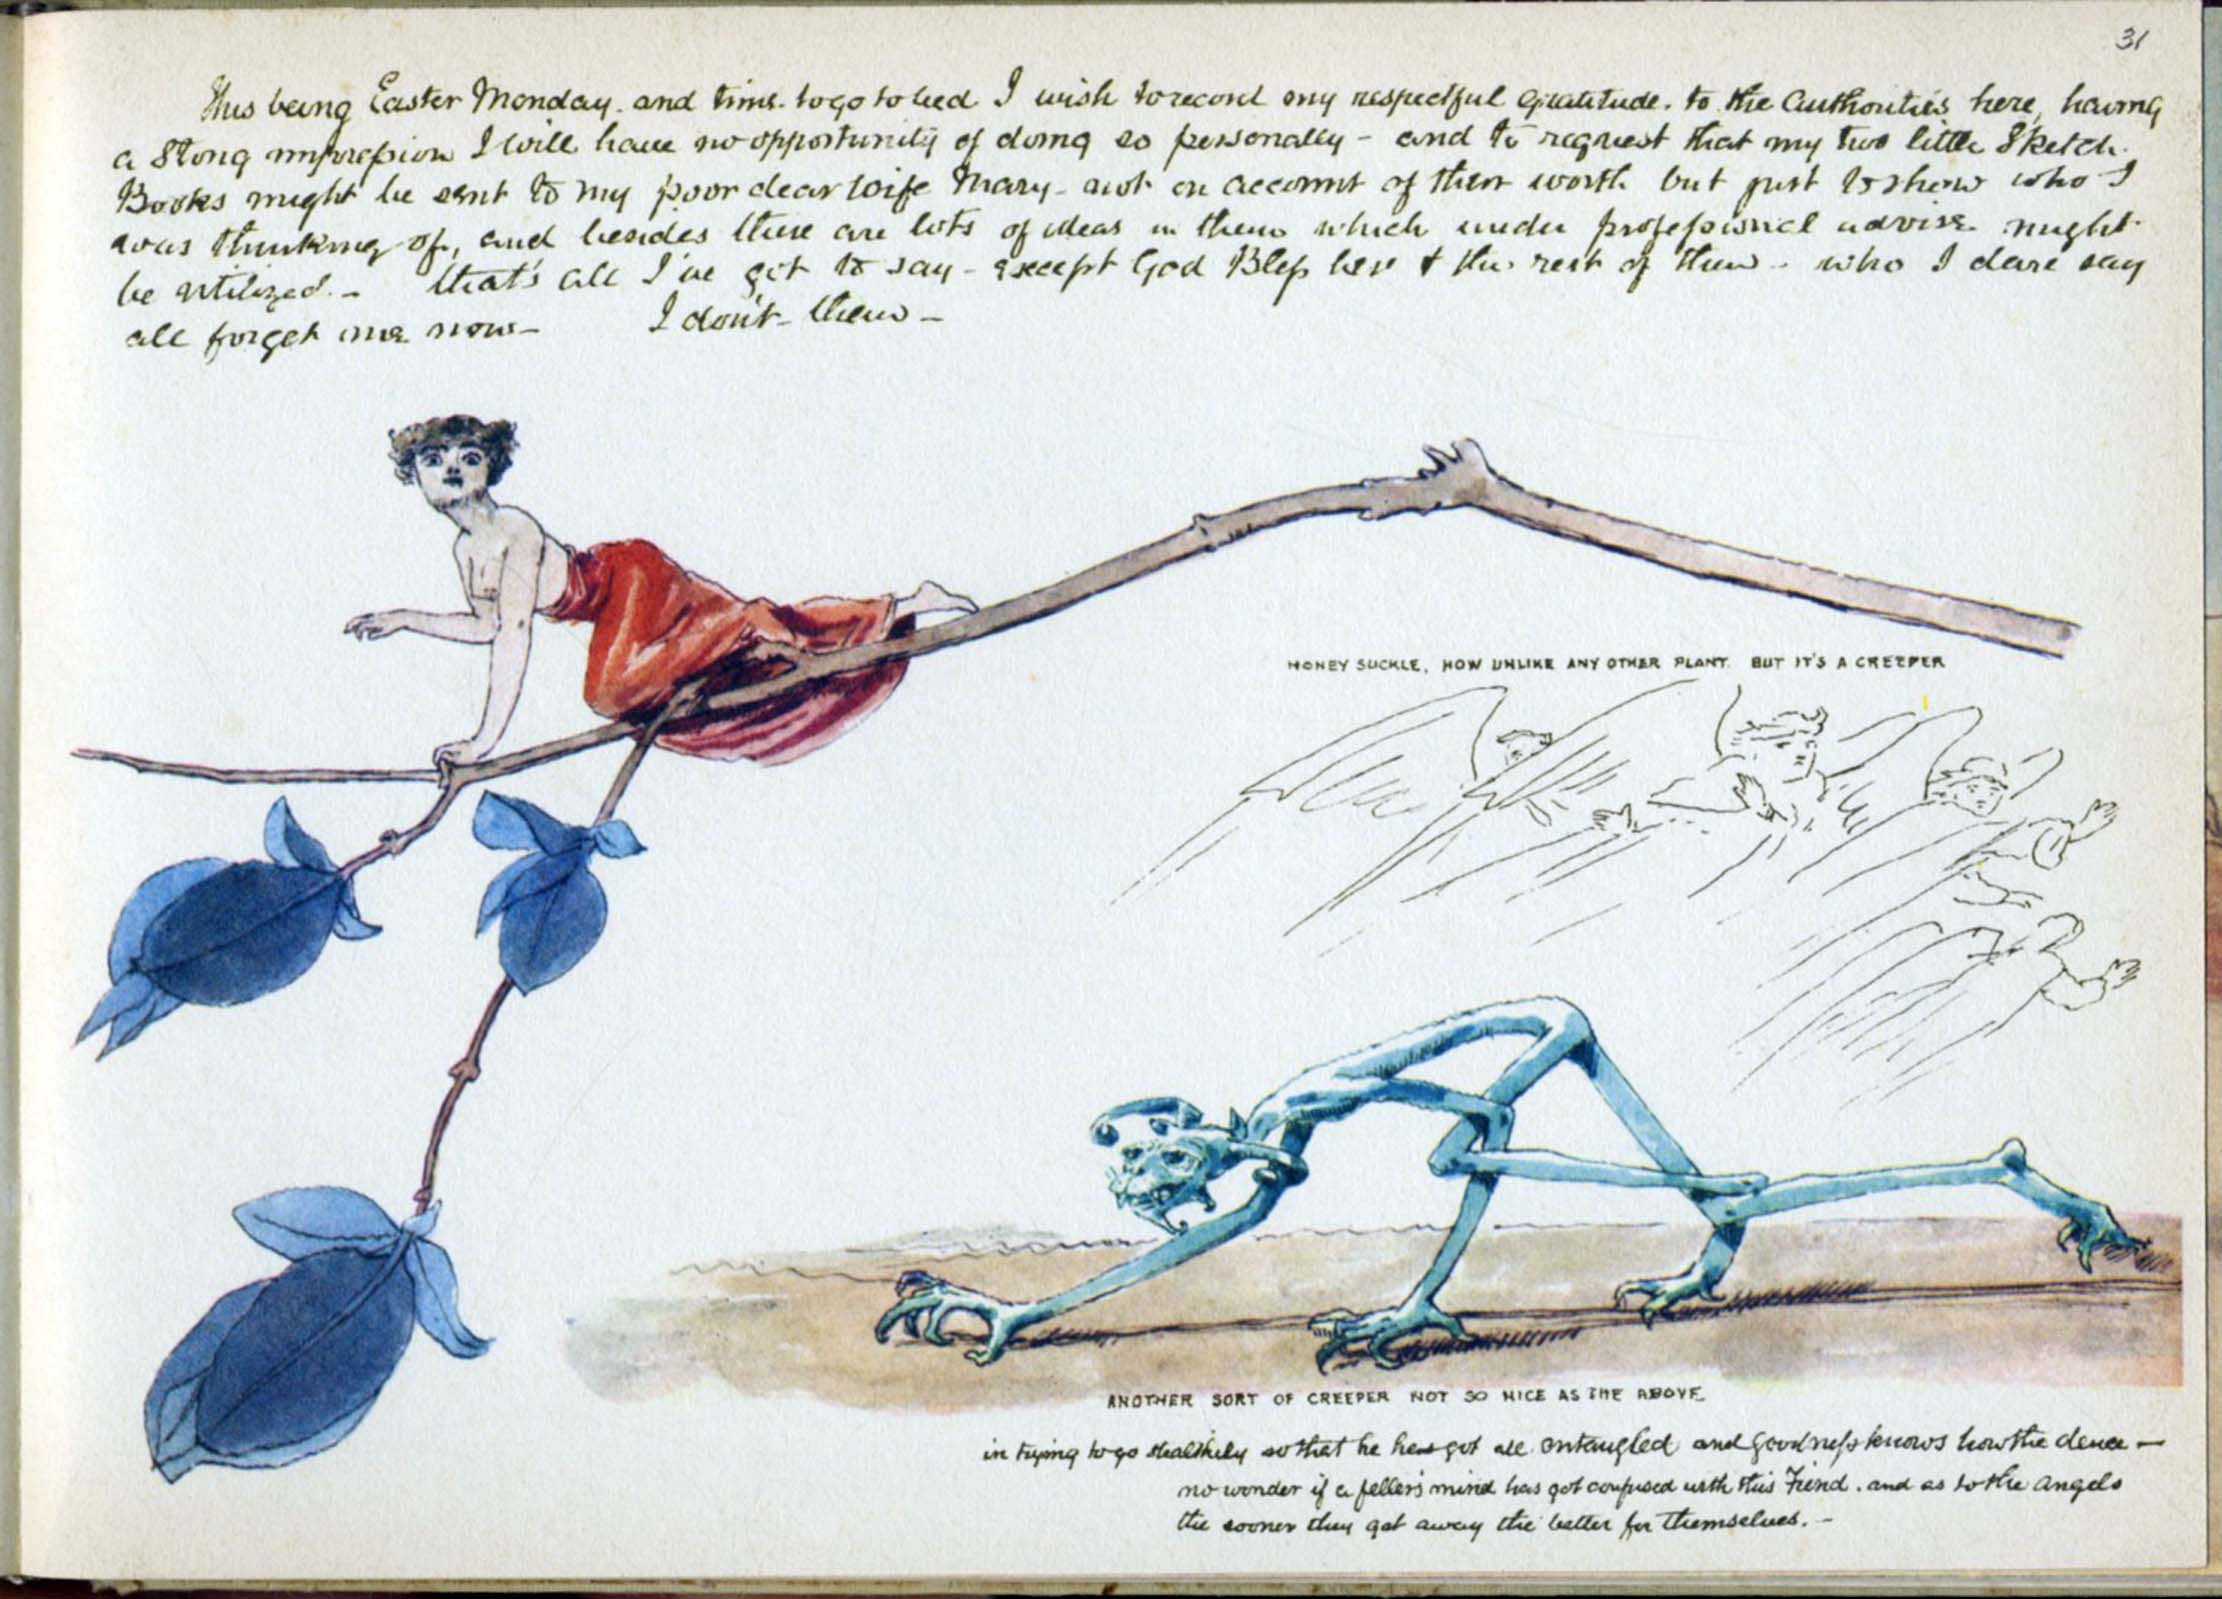 31
This being Easter Monday. and time. to go to bed I wish to record my respectful Gratitude. to the Authorities here, having
a Stong impression I will have no opportunity of doing so personally - and to request that my two little Sketch.
Books might be sent to my poor dear wife Mary - not on account of their worth but just to show who I
was thinking of, and besides there are lots of ideas in them which under professional advise might
be utilized. - that's all I've got to say - except God Bless her & the rest of them - who I dare say
all forget me now - I don't - them -
HONEY SUCKLE, HOW UNLIKE ANY OTHER PLANT. BUT IT'S A CREEPER
ANOTHER SORT OF CREEPER NOT SO NICE AS THE ABOVE
in trying to go stealthily so that he has got all entangled and goodness knows how the deuce -
no wonder if a feller's mind has got confused with this Fiend. and as to the Angels
the sooner they get away the better for themselves. -